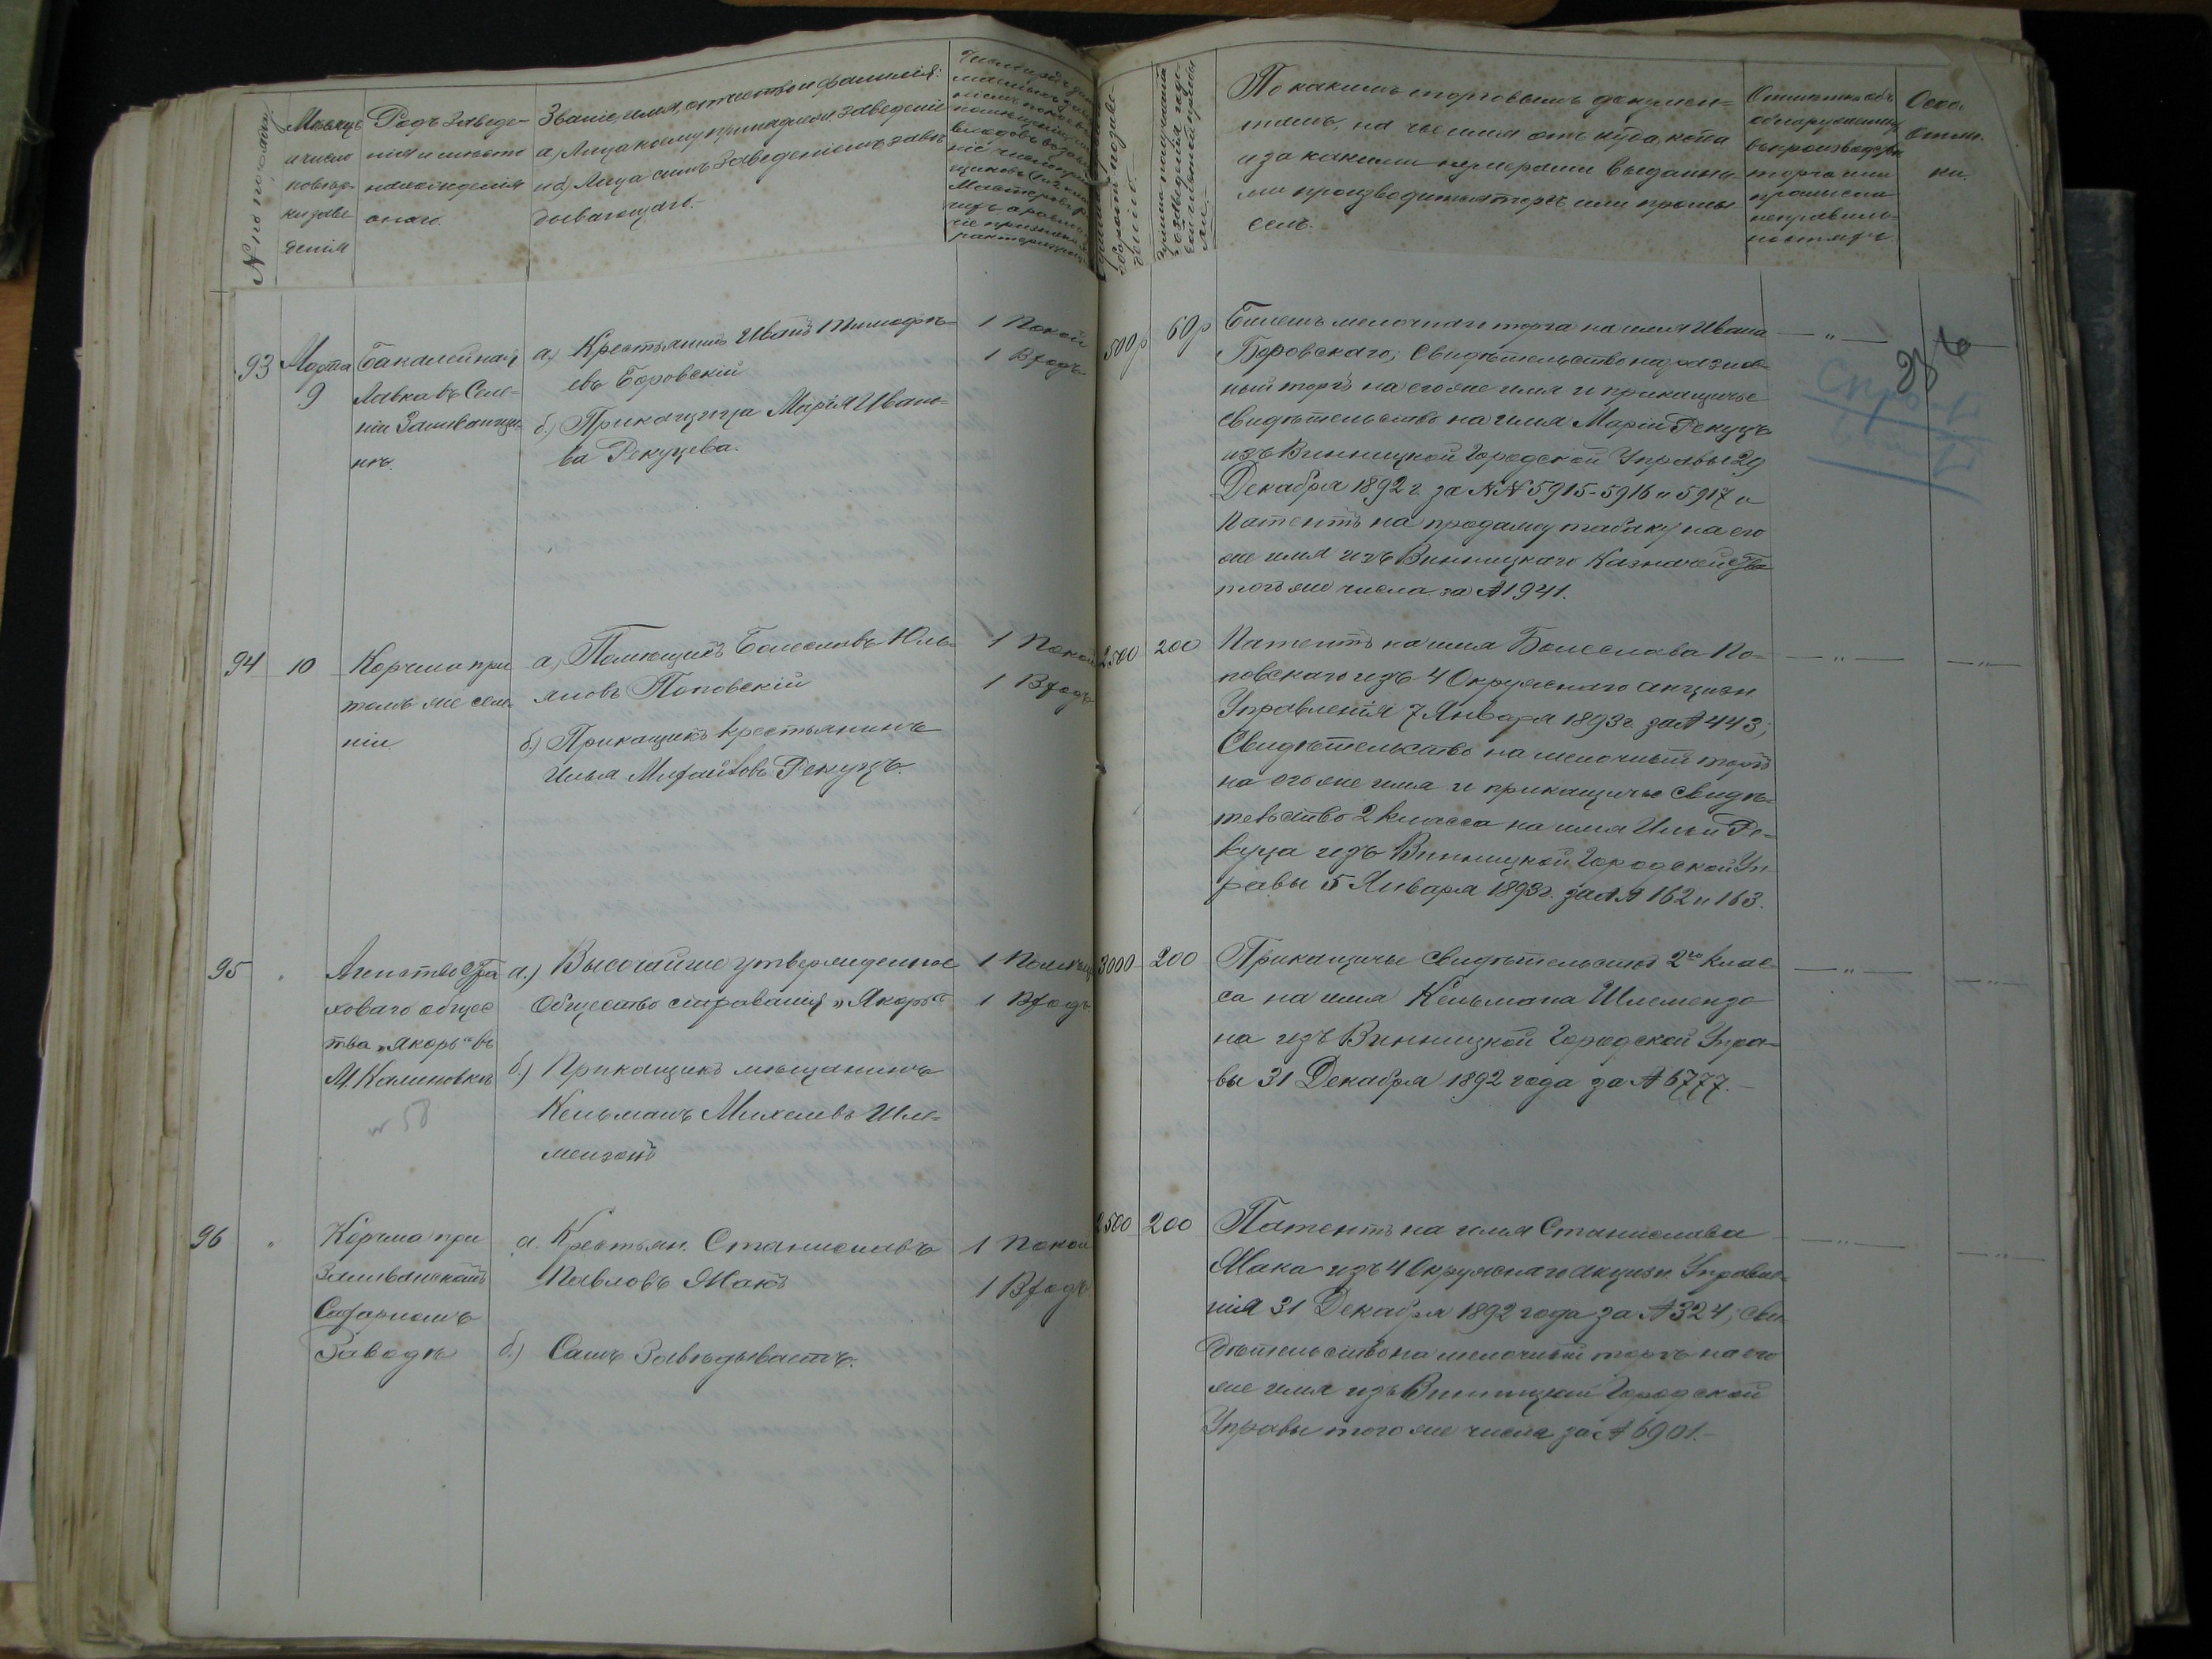 №№ по порядку
Мѣсяцъ
и число
повѣр-
ки заве
денія
Родъ заведе-
нія и мѣсто
нахожденія
онаго.
Званіе, имя, отчество и фамилія:
а) Лица коему принадлеж. заведеніе
и б) Лица симъ заведеніемъ завѣ
дывающаго.-
По какимъ торговымъ докумен-
тамъ, на чье имя отъ куда, когда
и за какими нумерами выданны-
ми производится торгъ или промы
селъ.
Отмѣтка объ
обнаруженныхъ
въ производствѣ
торга или
промысла
неправиль-
ностяхъ
Осо.
Отмѣт.
ки.
93
Марта
9
Бакалейная
Лавка въ Селе-
ніи Заливанщи-
нѣ.
а) Крестьянинъ Иванъ Тимофѣ-
евъ Боровскій
б.) Прикащица Марія Ивано-
ва Рекуцева.
1 Покой
1 Входъ
500 р
60 р
Билетъ мелочнаго торга на имя Ивана
Боровскаго; Свидѣтельство на разнос-
ный торгъ на его же имя и прикащичье
свидѣтельство на имя Маріи Рекуцъ
изъ Винницкой Городской Управы 29
Декабря 1892 г. за №№ 5915-5916 и 5917 и
Патентъ на продажу табаку на его
же имя изъ Винницкаго Казначейства
того же числа за № 1941.
94
10
Корчма при
томъ же селе
ніи
а) Помѣщикъ Болеславъ Юль-
яновъ Поповскій
б.) Прикащикъ крестьянинъ
Илья Михайловъ Рекуцъ.
1 Покой
1 Входъ
2500
200
Патентъ на имя Болеслава По-
повскаго изъ 4 Окружнаго акцизн.
Управленія 7 Января 1893 г. за № 443;
Свидѣтельство на мелочный торгъ
на его же имя и прикащичье свидѣ-
тельство 2 класса на имя Ильи Ре-
куца изъ Винницкой Городской Уп-
равы 5 Января 1893 г. за №№ 162 и 163.
95
"
Агентство Стра
ховаго общес
тва „Якорь“ въ
М. Калиновкѣ
№ 58
а.) Высочайше утвержденное
Общество страхованія „Якорь“
б.) Прикащикъ мѣщанинъ
Кельманъ Михелевъ Шле-
мензонъ
1 Помѣщ
1 Входъ
3000
200
Прикащичье свидѣтельство 2го клас-
са на имя Кельмана Шлемензо
на изъ Винницкой Городской Упра-
вы 31 Декабря 1892 года за № 6777.-
96
"
Корчма при
Заливанскомъ
Сахарномъ
Заводѣ
а. Крестьян. Станиславъ
Павловъ Макъ
б.) Самъ Завѣдываетъ.
1 Покой
1 Входъ
2500
200
Патентъ на имя Станислава
Мака изъ 4 Окружнаго акцизн. Управле-
нія 31 Декабря 1892 года за № 324; Сви-
дѣтельство на мелочный торгъ на его
же имя изъ Винницкой Городской
Управы того же числа за № 6901.-